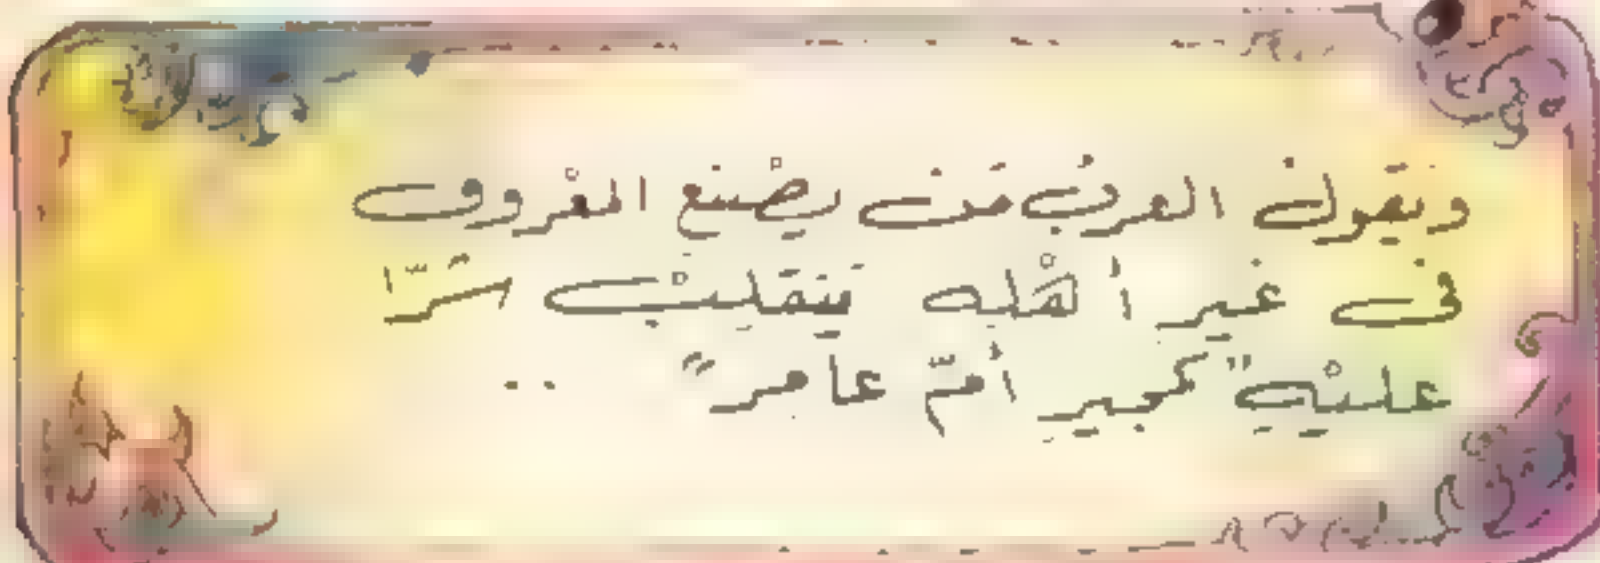 وتقولُ العربُ مَنْ يصْنع المعْروف
فى غير أهْلِه يَنقَلبْ شَرًّا
عليْهِ "كمجير أمّ عامر" ..